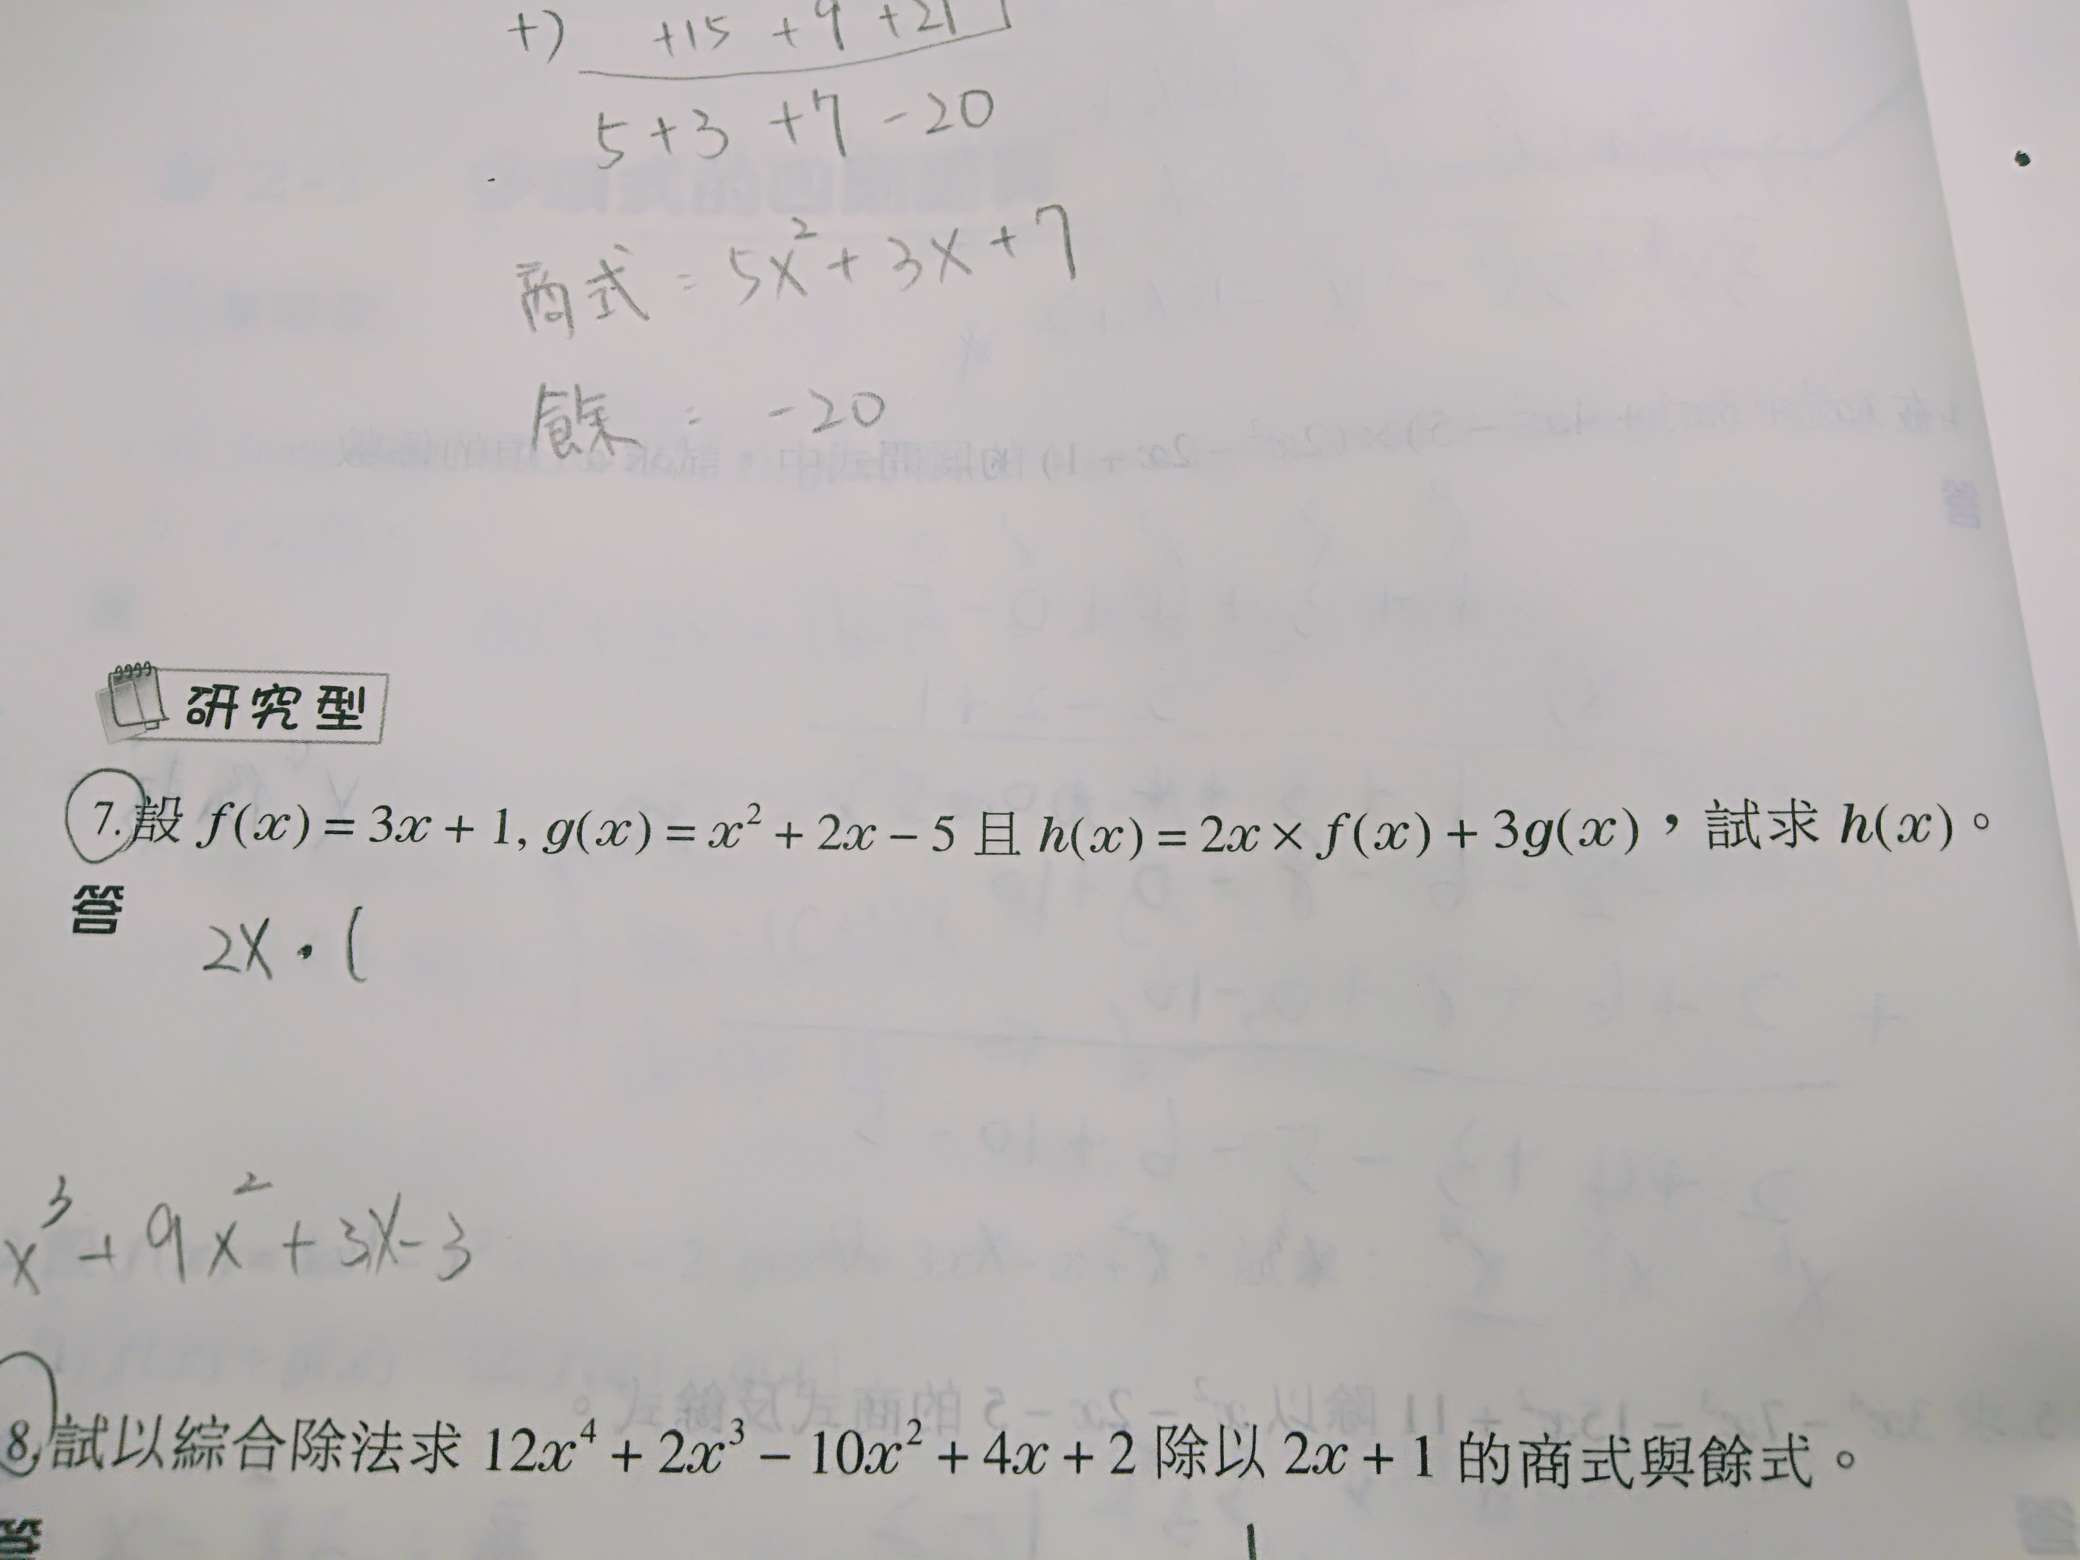 +) +15 +9 +21
5+3 +7 -20
商式 = 5x²+3x+7
餘 = -20
研究型
7. 設 f(x) = 3x + 1, g(x) = x² + 2x − 5 且 h(x) = 2x × f(x) + 3g(x)，試求 h(x)。
答
2x · (
x³+9x²+3x-3
8. 試以綜合除法求 12x⁴ + 2x³ − 10x² + 4x + 2 除以 2x + 1 的商式與餘式。
答